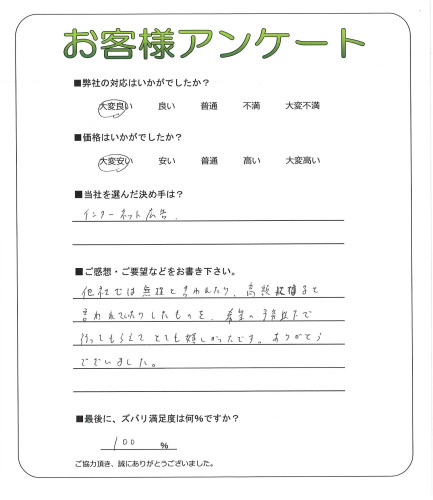 お客様アンケート
■弊社の対応はいかがでしたか？
大変良い 良い 普通 不満 大変不満
■価格はいかがでしたか？
大変安い 安い 普通 高い 大変高い
■当社を選んだ決め手は？
インターネット広告.
■ご感想・ご要望などをお書き下さい。
他社では無理と言われたり、高額
言われていたりしたものを、希望の
行ってもらえて とても嬉しかったです。ありがとう
ございました。
■最後に、ズバリ満足度は何％ですか？
100 %
ご協力頂き、誠にありがとうございました。